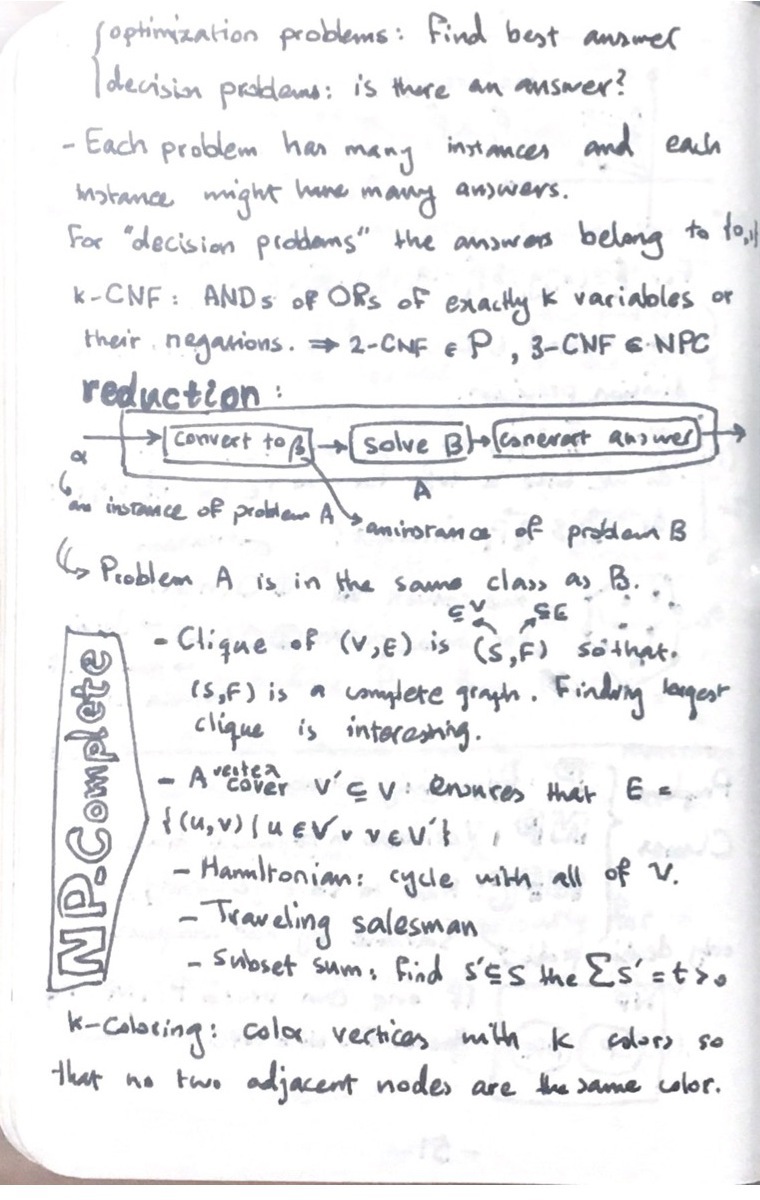 optimization problems: Find best answer
decision problems: is there an answer?
- Each problem has many instances and each
instance might have many answers.
For "decision problems" the answers belong to {0,1}
k-CNF: ANDs of ORs of exactly k variables or
their negations. ⇒ 2-CNF ∈ P, 3-CNF ∈ NPC
reduction:
α → convert to β → solve B → convert answer →
A
an instance of problem A
an instance of problem B
Problem A is in the same class as B.
⊆V ⊆E
NP-Complete
- Clique of (V,E) is (S,F) so that
(S,F) is a complete graph. Finding largest
clique is interesting.
- A vertex cover V' ⊆ V: ensures that E =
{(u,v) | u ∈ V' ∨ v ∈ V'}
- Hamiltonian: cycle with all of V.
- Traveling salesman
- Subset sum: find S'⊆S the ∑S' = t>0
k-coloring: color vertices with k colors so
that no two adjacent nodes are the same color.